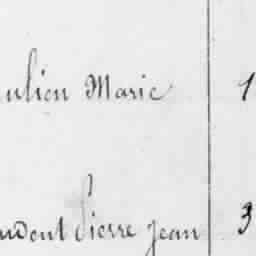 ulien Marie 1
udent Pierre Jean 3